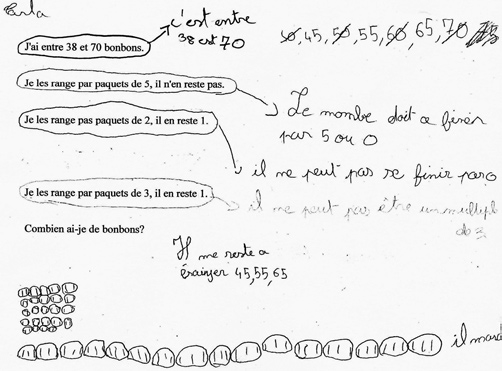 Carla
c'est entre
38 et 70
J'ai entre 38 et 70 bonbons.
50, 45, 50, 55, 60, 65, 70
Je les range par paquets de 5, il n'en reste pas.
Le nombre doit ce finir
par 5 ou 0
Je les range pas paquets de 2, il en reste 1.
il ne peut pas se finir par 0
Je les range par paquets de 3, il en reste 1.
il ne peut pas être un multipl
de 3
Combien ai-je de bonbons?
Il me reste a
45, 55, 65
il